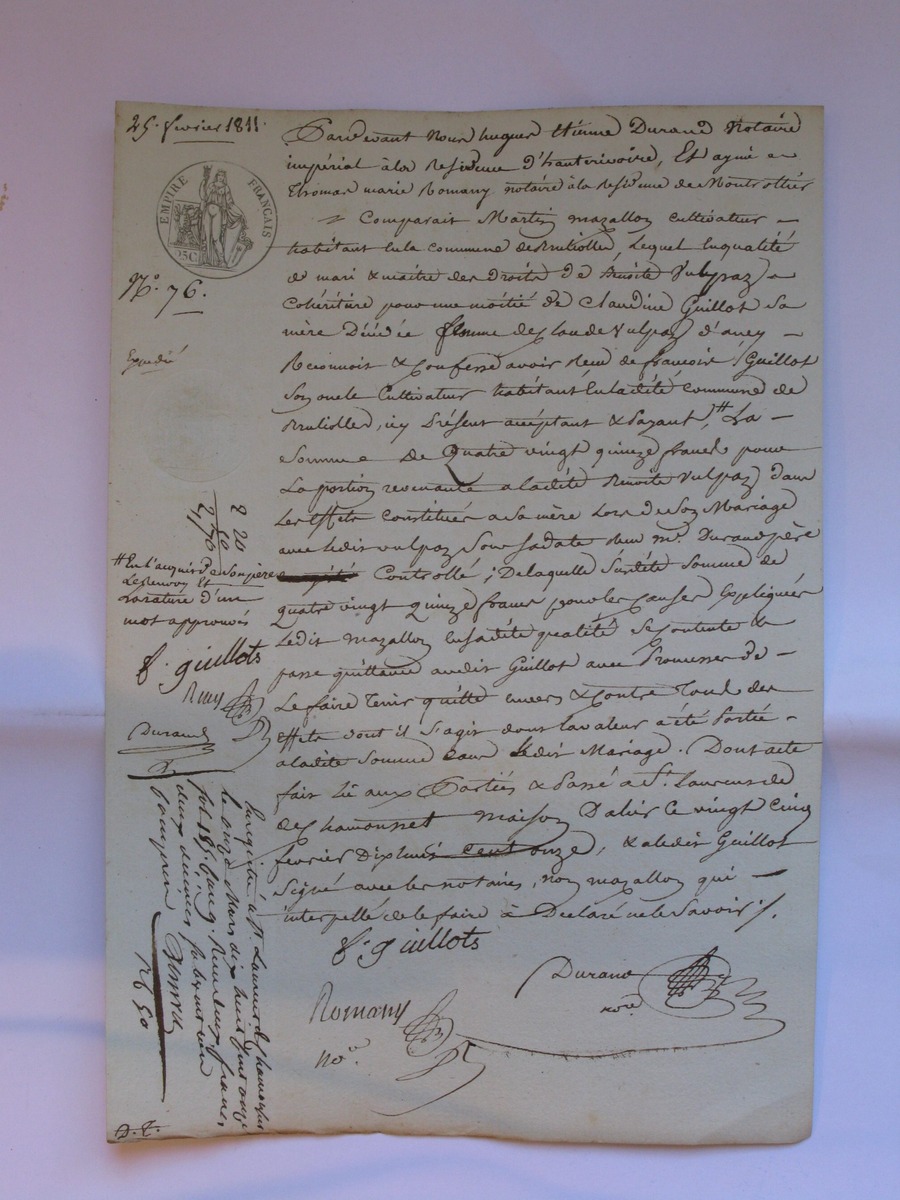 25. fevrier 1811.
EMPIRE FRANÇAIS
N.o 76.
Expedié
Pardevant Nous hugues Etienne Durand Notaire
impérial à la Residence d'hauterivoire, Et aymé
Thomas marie Romany notaire à la Residence de Montrottier
Comparait Martin mazallon cultivateur
habitant en la commune de Brullolles, Lequel En qualité
de mari & maitre des droits de Benoite Vulpaz
cohéritière pour une moitié de Claudine Guillot Sa
mère Décédée femme de Claude Vulpaz d'avey
Reconnoit & Confesse avoir Reçu de françois Guillot
Son oncle Cultivateur habitant En ladite commune de
Brullolles, icy Présent acceptant & Payant #, La
Somme De Quatre vingt quinze francs pour
La portion revenante a ladite Benoite Vulpaz dans
Les Effets constitués a Sa mère Lors de Son Mariage
avec ledit vulpaz Sous Sa date Reçu m.e Durand père
Controllé; De laquelle Susdite Somme de
Quatre vingt Quinze francs pour les Causes Expliquées
Ledit Mazallon En Sadite qualité Se contente &
passe quittance audit Guillot avec Promesse de
Le faire Tenir quitte envers & contre Tous des
effets dont il S'agit dont la valeur a été Portée
a ladite Somme dans ledit Mariage. Dont acte
fait Lû aux Parties & Passé a S.t Laurent de
de chamousset maison Dalin Ce vingt Cinq
fevrier Dix huit Cent onze, & a ledit Guillot
Signé avec les notaires, non mazallon qui
interpellé de le faire à Declaré ne le Savoir ./.
f. Guillots
Durand
no.re
Romany
no.e
2 20
50
2,70
# En l'acquit de Son père
Le Renvoy Et
La rature d'un
mot approuvés
f. guillots
Romy
Durand
Enregistré à St. Laurent de chamousset
le onze Mars dix huit Cent onze
fol. 185. Reçu deux francs
deux decimes
compris
D. T.